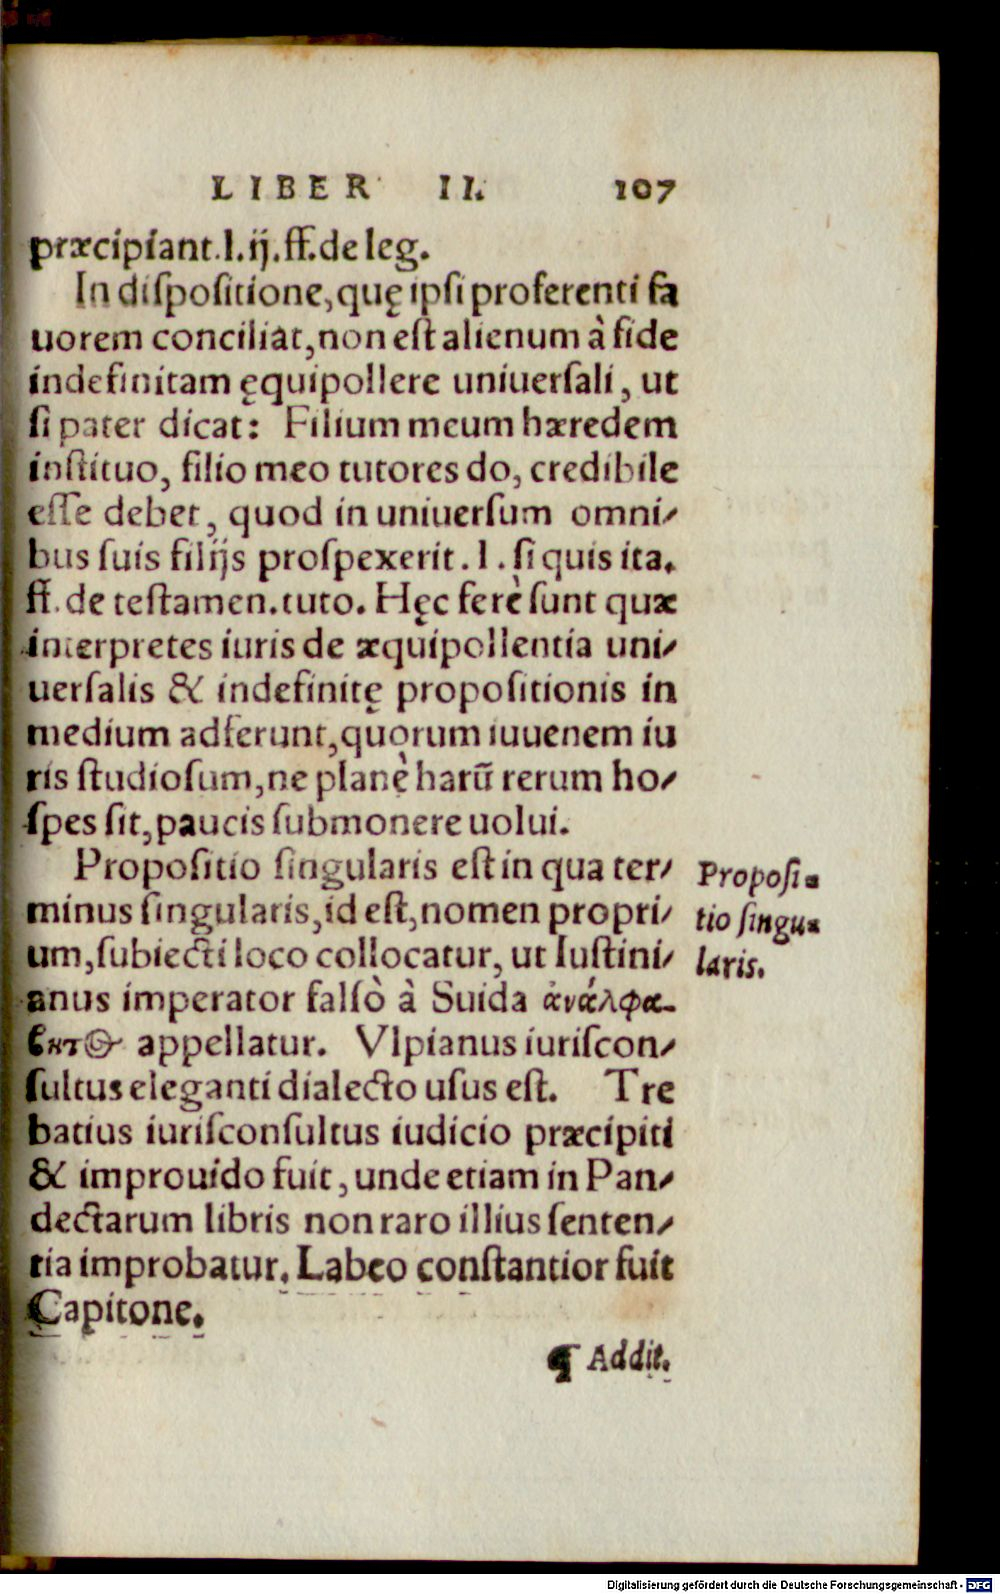 LIBER II. 107
præcipiant.l.ij.ff.de leg.
In dispositione,quę ipsi proferenti fa
uorem conciliat,non est alienum à fide
indefinitam ęquipollere uniuersali, ut
si pater dicat: Filium meum hæredem
instituo, filio meo tutores do, credibile
esse debet, quod in uniuersum omni⸗
bus suis filijs prospexerit. l. si quis ita.
ff. de testamen.tuto. Hęc ferè sunt quæ
interpretes iuris de æquipollentia uni⸗
uersalis & indefinitę propositionis in
medium adferunt,quorum iuuenem iu
ris studiosum,ne planè harū rerum ho⸗
spes sit,paucis submonere uolui.
Propositio singularis est in qua ter⸗
minus singularis,id est,nomen propri⸗
um,subiecti loco collocatur, ut Iustini⸗
anus imperator falsò à Suida ἀνάλφα-
βητος appellatur. Vlpianus iuriscon⸗
sultus eleganti dialecto usus est. Tre
batius iurisconsultus iudicio præcipiti
& improuido fuit, unde etiam in Pan⸗
dectarum libris non raro illius senten⸗
tia improbatur. Labeo constantior fuit
Capitone.
¶ Addit.
Proposi⸗
tio singu⸗
laris.
Digitalisierung gefördert durch die Deutsche Forschungsgemeinschaft - DFG